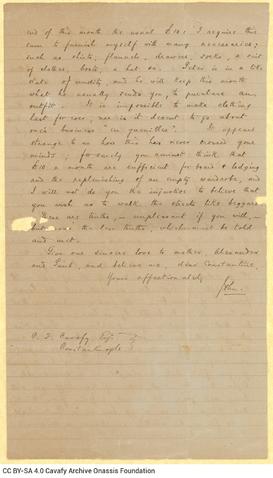 end of this month the usual £10; I require this
sum to furnish myself with many necessaries;
such as shirts, flannels, drawers, socks, a suit
of clothes, boots, a hat &c. Peter is in a like
state of nudity, and he will keep this month
what he usually sends you, to purchase an
outfit. It is impossible to make clothing
last for ever, nor is it decent to go about
one's business "en guenilles". It appears
strange to us how this has never crossed your
minds; for surely you cannot think that
£10 a month are sufficient for board & lodging
and the replenishing of an empty wardrobe, and
I will not do you the injustice to believe that
you wish us to walk the streets like beggars.
These are truths, — unpleasant if you will, —
but none the less truths, which must be told
and met.
Give our sincere love to mother, Alexander
and Paul, and believe me, dear Constantine,
Yours affectionately
John.
C. F. Cavafy Esqre
Constantinople
CC BY-SA 4.0 Cavafy Archive Onassis Foundation